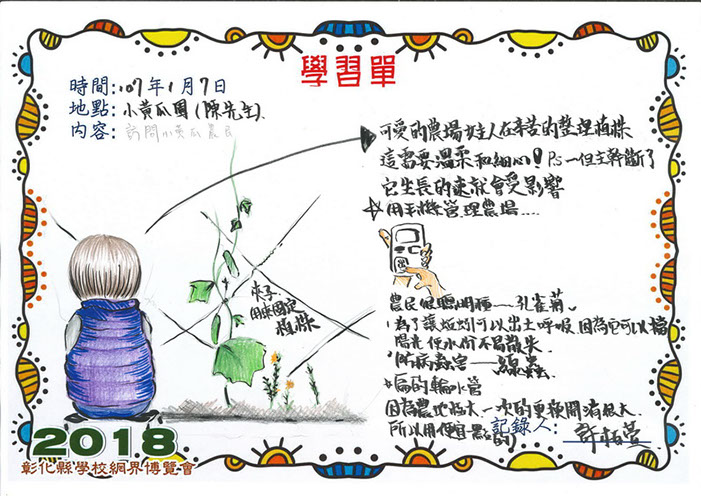 學習單
時間:107年1月7日
地點:小黃瓜園(陳先生)
內容:訪問小黃瓜農民
可愛的農場女主人在辛苦的整理植株
這需要溫柔和細心!Ps一但主幹斷了
它生長的速就會受影響
用手機管理農場....
夾子
用來固定
植株
農民很聰明種~~孔雀菊
為了讓 可以出土呼吸,因為它可以擋
陽光使水份不易散失
防病蟲害——線蟲
扁的輸水管
因為農地大 一次的更換開消很大
所以用便宜點的
記錄人:許栢萱
2018
彰化縣學校網界博覽會